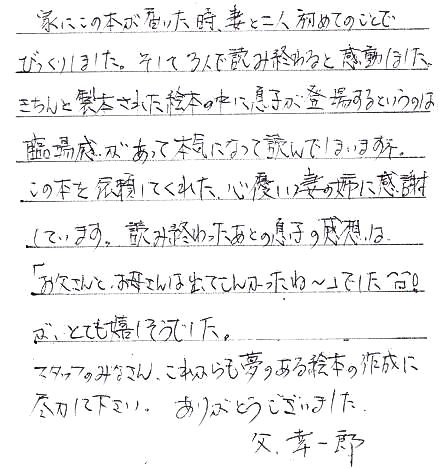 家にこの本が届いた時、妻と二人初めてのことで
びっくりしました。そして3人で読み終わると感動しました。
きちんと製本された絵本の中に息子が登場するというのは
臨場感があって本気になって読んでしまいますネ。
この本を依頼してくれた、心優しい妻の姉に感謝
しています。読み終わったあとの息子の感想は、
「お父さんと、お母さんは出てこんかったね〜」でした
が、とても嬉しそうでした。
スタッフのみなさん、これからも夢のある絵本の作成に
尽力して下さい。ありがとうございました。
父、幸一郎